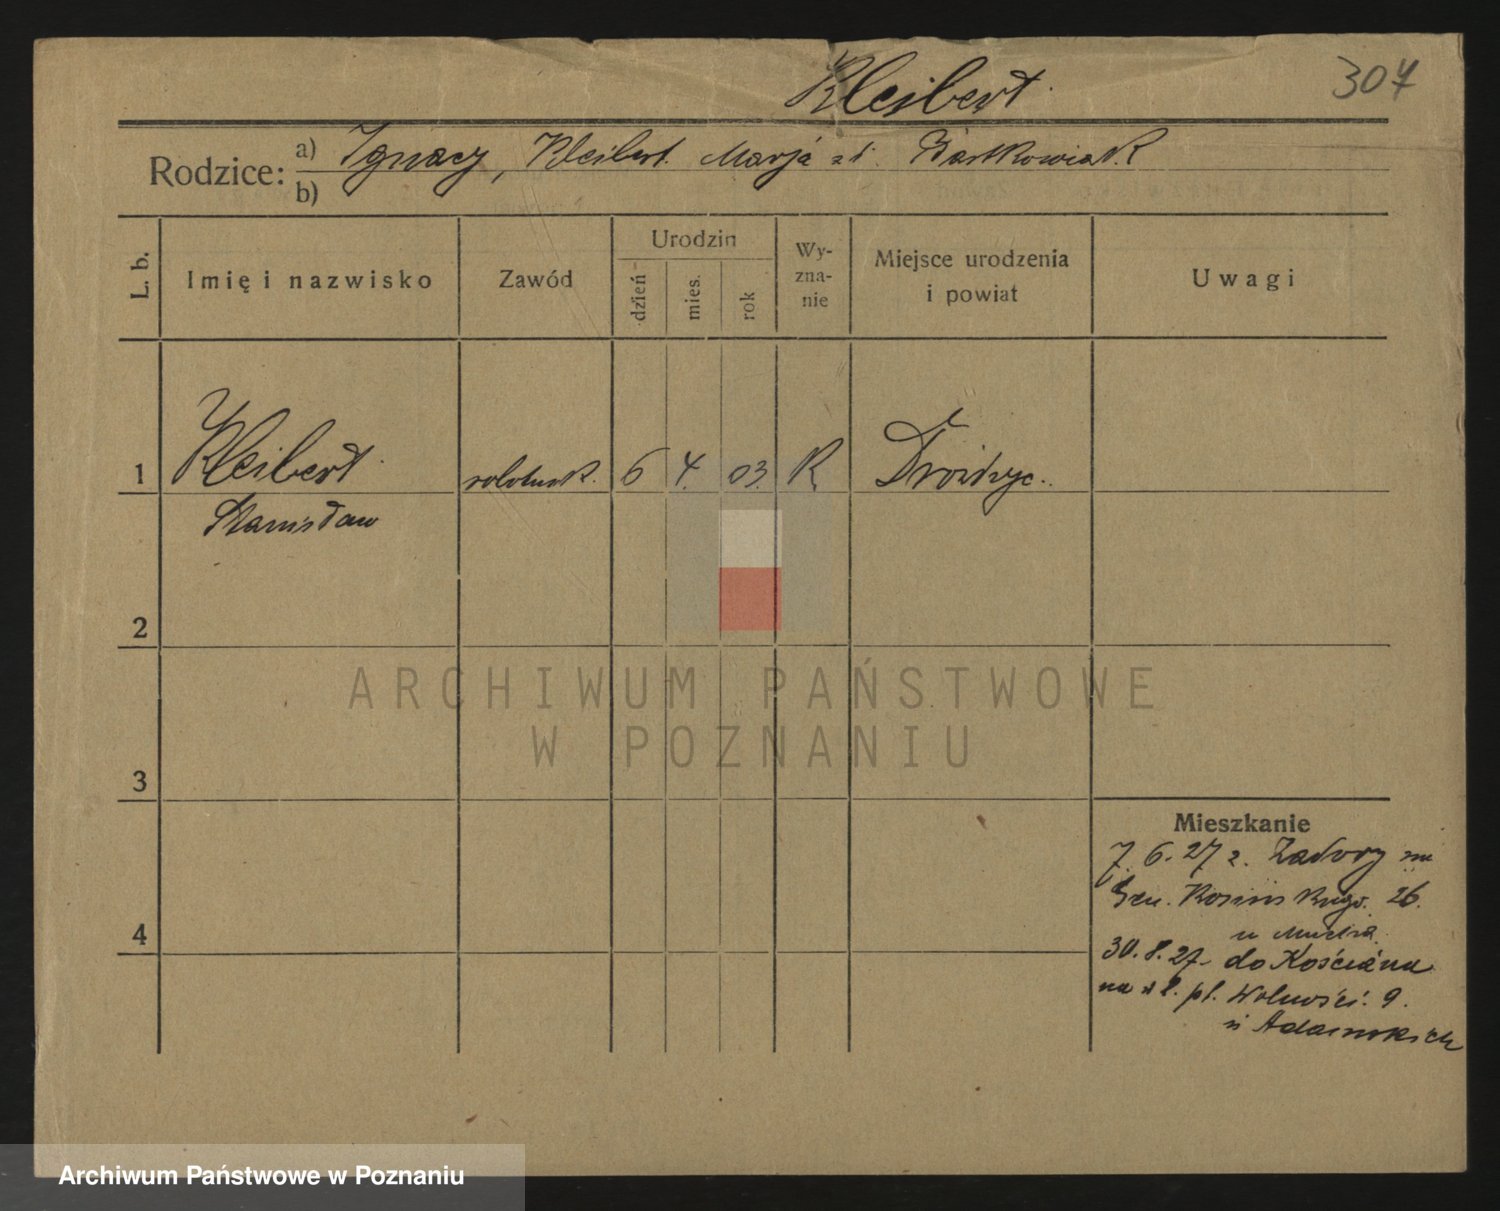 Kleibert.
307
Rodzice:
a) Ignacy, Kleibert. Marja zd. Bartkowiak
b)
L. b.
Imię i nazwisko
Zawód
Urodzin
dzień
mies.
rok
Wy-
zna-
nie
Miejsce urodzenia
i powiat
Uwagi
1
Kleibert robotnik. 6 4. 03. K
Stanisław
2
ARCHIWUM PAŃSTWOWE
W POZNANIU
3
4
Mieszkanie
7. 6. 27 z. Zadory
Gen. 26.
u Mucha
30. 8. 27 - do Kościana
pl. Wolności. 9.
u Adamskich
Archiwum Państwowe w Poznaniu